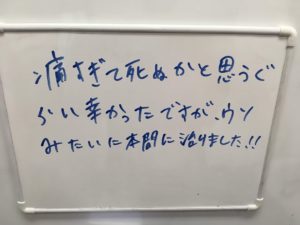 痛すぎて死ぬかと思うぐ
らい辛かったですが、ウソ
みたいに本間に治りました!!